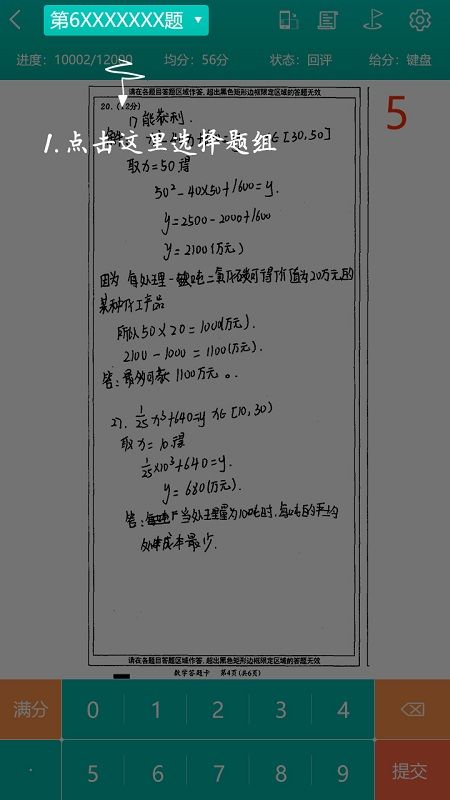 第6XXXXXXX题
进度：10002/12000 均分：56分 状态：回评 给分：键盘
请在各题目答题区域作答，超出黑色矩形边框限定区域的答题无效
20. (12分)
5
能获利.
1.点击这里选择题组
∈[30,50]
取x=50得
50²-40×50+1600=y.
y=2500-2000+1600
y=2100(万元)
因为 每处理一吨二氧化碳可得价值为20万元的
某种化工产品
所以 50×20=1000(万元).
2100-1000=1100(万元).
答: 最多可获1100万元。
27. 1/25 x³+640=y x∈[10,30)
取x=10得
1/25×10³+640=y.
y=680(万元).
答: 当处理量为10吨时,每吨的平均
处理成本最少.
请在各题目答题区域作答，超出黑色矩形边框限定区域的答题无效
数学答题卡 第4页(共6页)
满分 0 1 2 3 4
· 5 6 7 8 9 提交